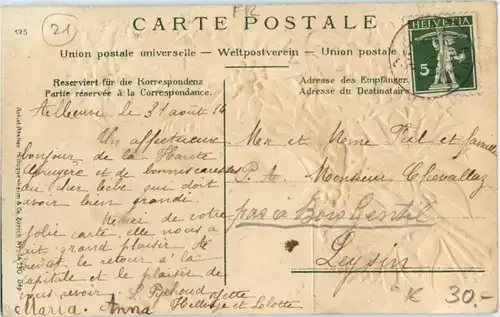 175
21
FR
CARTE POSTALE
Union postale universelle — Weltpostverein — Union postale
HELVETIA
5
Reserviert für die Korrespondenz
Partie réservée à la Correspondance.
Adresse des Empfänger
Adresse du Destinataire
le 31 août 14
Un affectueux
bonjour de la Haute
Gruyère et de bonnes caresses
au cher bébé qui doit
avoir bien grandi.
Merci de votre
jolie carte, elle nous a
fait grand plaisir. Au
revoir le retour à la
capitale et le plaisir de
vous revoir
Maria. Anna
et Lolotte
Mr et Mme et famille
P. A. Monsieur Chevallaz
Bois Gentil
Leysin
K 30.-